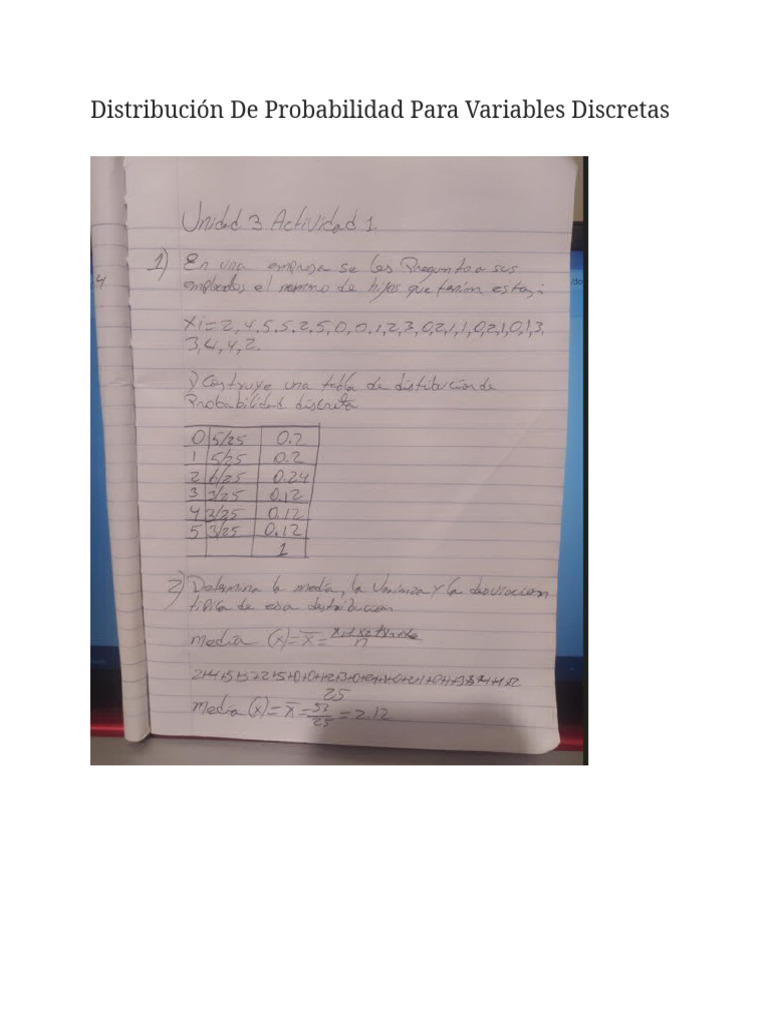 Distribución De Probabilidad Para Variables Discretas
Unidad 3 Actividad 1
1) En una empresa se les Pregunto a sus
empleados el numero de hijos que tenian estas:
Xi = 2, 4, 5, 5, 2, 5, 0, 0, 1, 2, 3, 0, 2, 1, 1, 0, 2, 1, 0, 1, 3,
3, 4, 4, 2.
1) Construye una tabla de distribucion de
Probabilidad discreta
0 5/25 0.2
1 5/25 0.2
2 6/25 0.24
3 3/25 0.12
4 3/25 0.12
5 3/25 0.12
1
2) Determina la media, la Varianza y la desviacion
tipica de esa distribucion
media (x) = x̄ =
n
25
media (x) = x̄ = 53/25 = 2.12